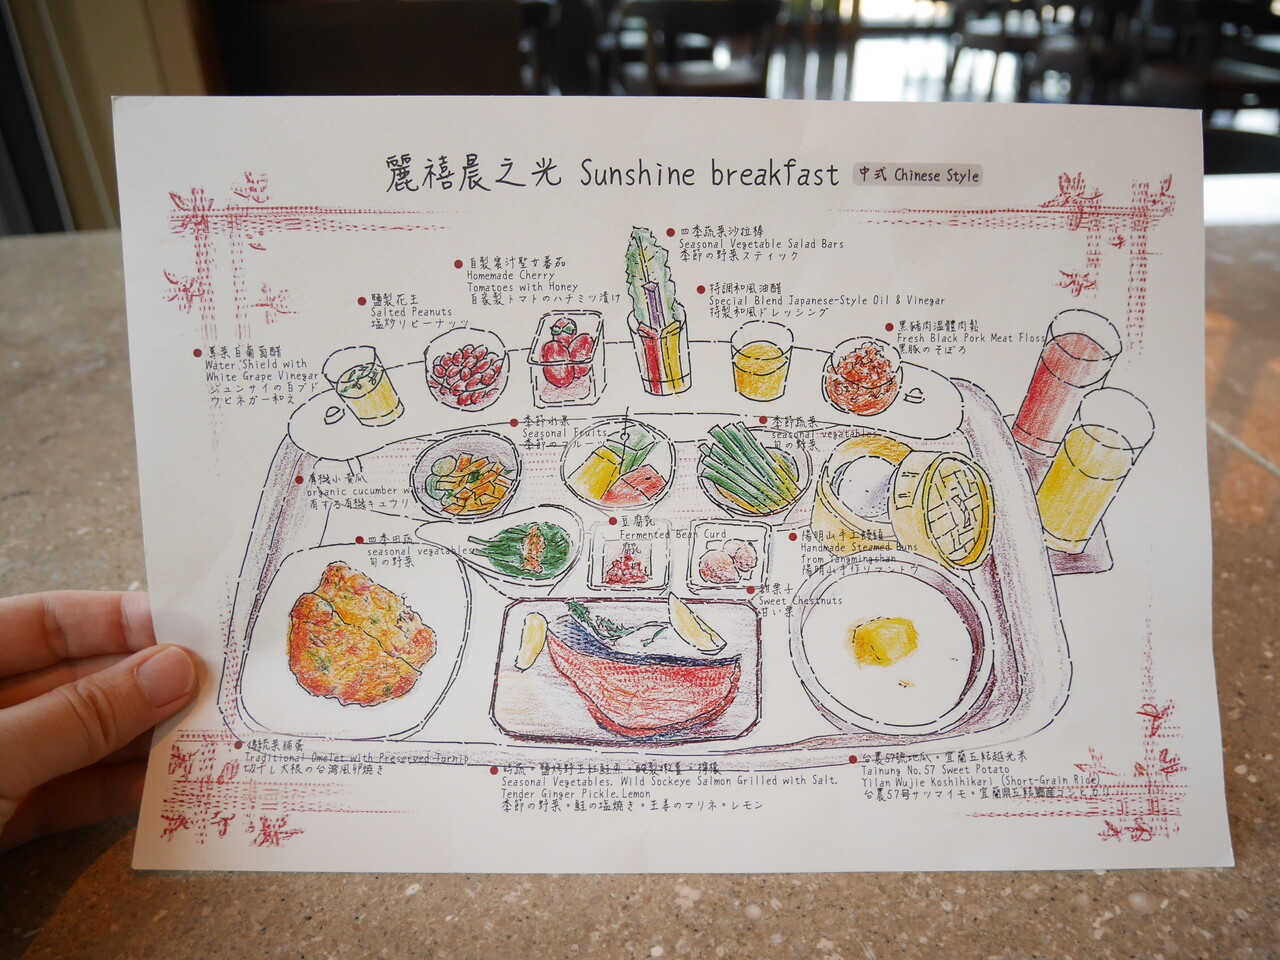 麗禧晨之光 Sunshine breakfast 中式 Chinese Style
四季蔬菜沙拉棒
Seasonal Vegetable Salad Bars
季節の野菜スティック
自製蜜汁聖女番茄
Homemade Cherry
Tomatoes with Honey
自家製トマトのハチミツ漬け
特調和風油醋
Special Blend Japanese-Style Oil & Vinegar
特製和風ドレッシング
鹽製花生
Salted Peanuts
塩炒りピーナッツ
黑豬肉溫體肉鬆
Fresh Black Pork Meat Floss
黒豚のそぼろ
蓴菜白葡萄醋
Water Shield with
White Grape Vinegar
ジュンサイの白ブド
ウビネガー和え
季節水果
Seasonal Fruits
季節のフルーツ
季節蔬菜
seasonal vegatables
旬の野菜
有機小黃瓜
organic cucumber with
有する有機キュウリ
豆腐乳
Fermented Bean Curd
腐乳
四季田蔬
seasonal vegatables
旬の野菜
陽明山手工饅頭
Handmade Steamed Buns
from Yangmingshan
陽明山手作りマントウ
甜栗子
Sweet Chestnuts
甘い栗
傳統菜脯蛋
Traditional Omelet with Preserved Turnip
切干し大根の台湾風卵焼き
時蔬、鹽烤野生紅鮭魚、醃製嫩薑、檸檬
Seasonal Vegetables, Wild Sockeye Salmon Grilled with Salt.
Tender Ginger Pickle, Lemon
季節の野菜・鮭の塩焼き・生姜のマリネ・レモン
台農57號地瓜、宜蘭五結越光米
Tainung No.57 Sweet Potato
Yilan Wujie Koshihikari (Short-Grain Rice)
台農57号サツマイモ・宜蘭県五結郷産コシヒカリ